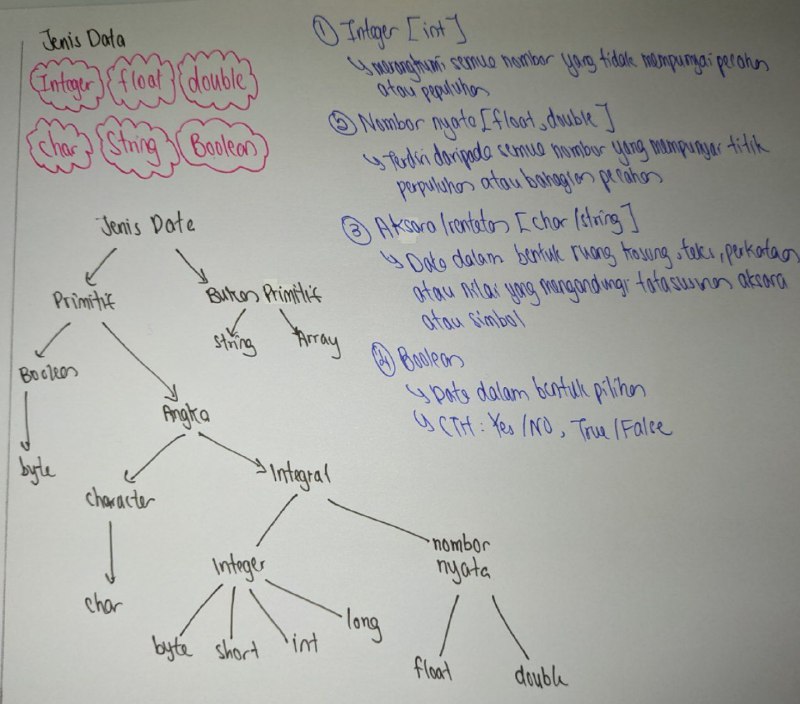 Jenis Data
Integer float double
char String Boolean
Jenis Data
Primitif
Bukan Primitif
String
Array
Boolean
byte
Angka
character
char
Integral
Integer
byte
short
int
long
nombor
nyata
float
double
① Integer [int]
↳ merangkumi semua nombor yang tidak mempunyai pecahan
atau perpuluhan
② Nombor nyata [float, double]
↳ Terdiri daripada semua nombor yang mempunyai titik
perpuluhan atau bahagian pecahan
③ Aksara/rentetan [char/string]
↳ Data dalam bentuk ruang kosong, teks, perkataan
atau nilai yang mengandungi tatasusunan aksara
atau simbol
④ Boolean
↳ Data dalam bentuk pilihan
↳ CTH: Yes/NO, True/False